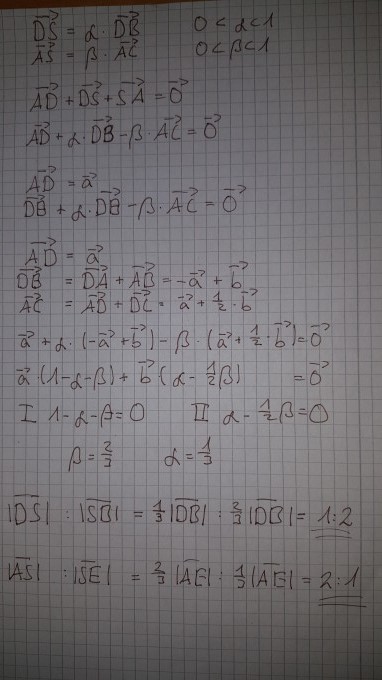 DS⃗ = α · DB⃗ 0 < α < 1
AS⃗ = β · AC⃗ 0 < β < 1
AD⃗ + DS⃗ + SA⃗ = 0⃗
AD⃗ + α · DB⃗ - β · AC⃗ = 0⃗
AD⃗ = a⃗
DB⃗ + α · DB⃗ - β · AC⃗ = 0⃗
AD⃗ = a⃗
DB⃗ = DA⃗ + AB⃗ = -a⃗ + b⃗
AC⃗ = AD⃗ + DC⃗ = a⃗ + 1/2 · b⃗
a⃗ + α · (-a⃗ + b⃗) - β · (a⃗ + 1/2 · b⃗) = 0⃗
a⃗ · (1-α-β) + b⃗ (α - 1/2 β) = 0⃗
I 1-α-β = 0 II α - 1/2 β = 0
β = 2/3 α = 1/3
|DS| : |SB| = 1/3 |DB| : 2/3 |DB| = 1:2
|AS| : |SE| = 2/3 |AE| : 1/3 |AE| = 2:1